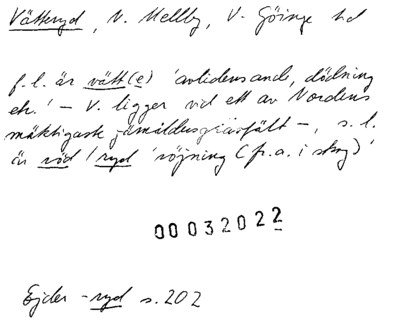 Vätteryd, N. Mellby, V. Göinge hd
f.l. är vätt(e) 'avlidens ande, dödning
etc.' – V. ligger vid ett av Nordens
mäktigaste järnåldersgravfält –, s.l.
är röd / ryd 'röjning (fr.a. i skog)'
00032022
Ejder -ryd s. 202